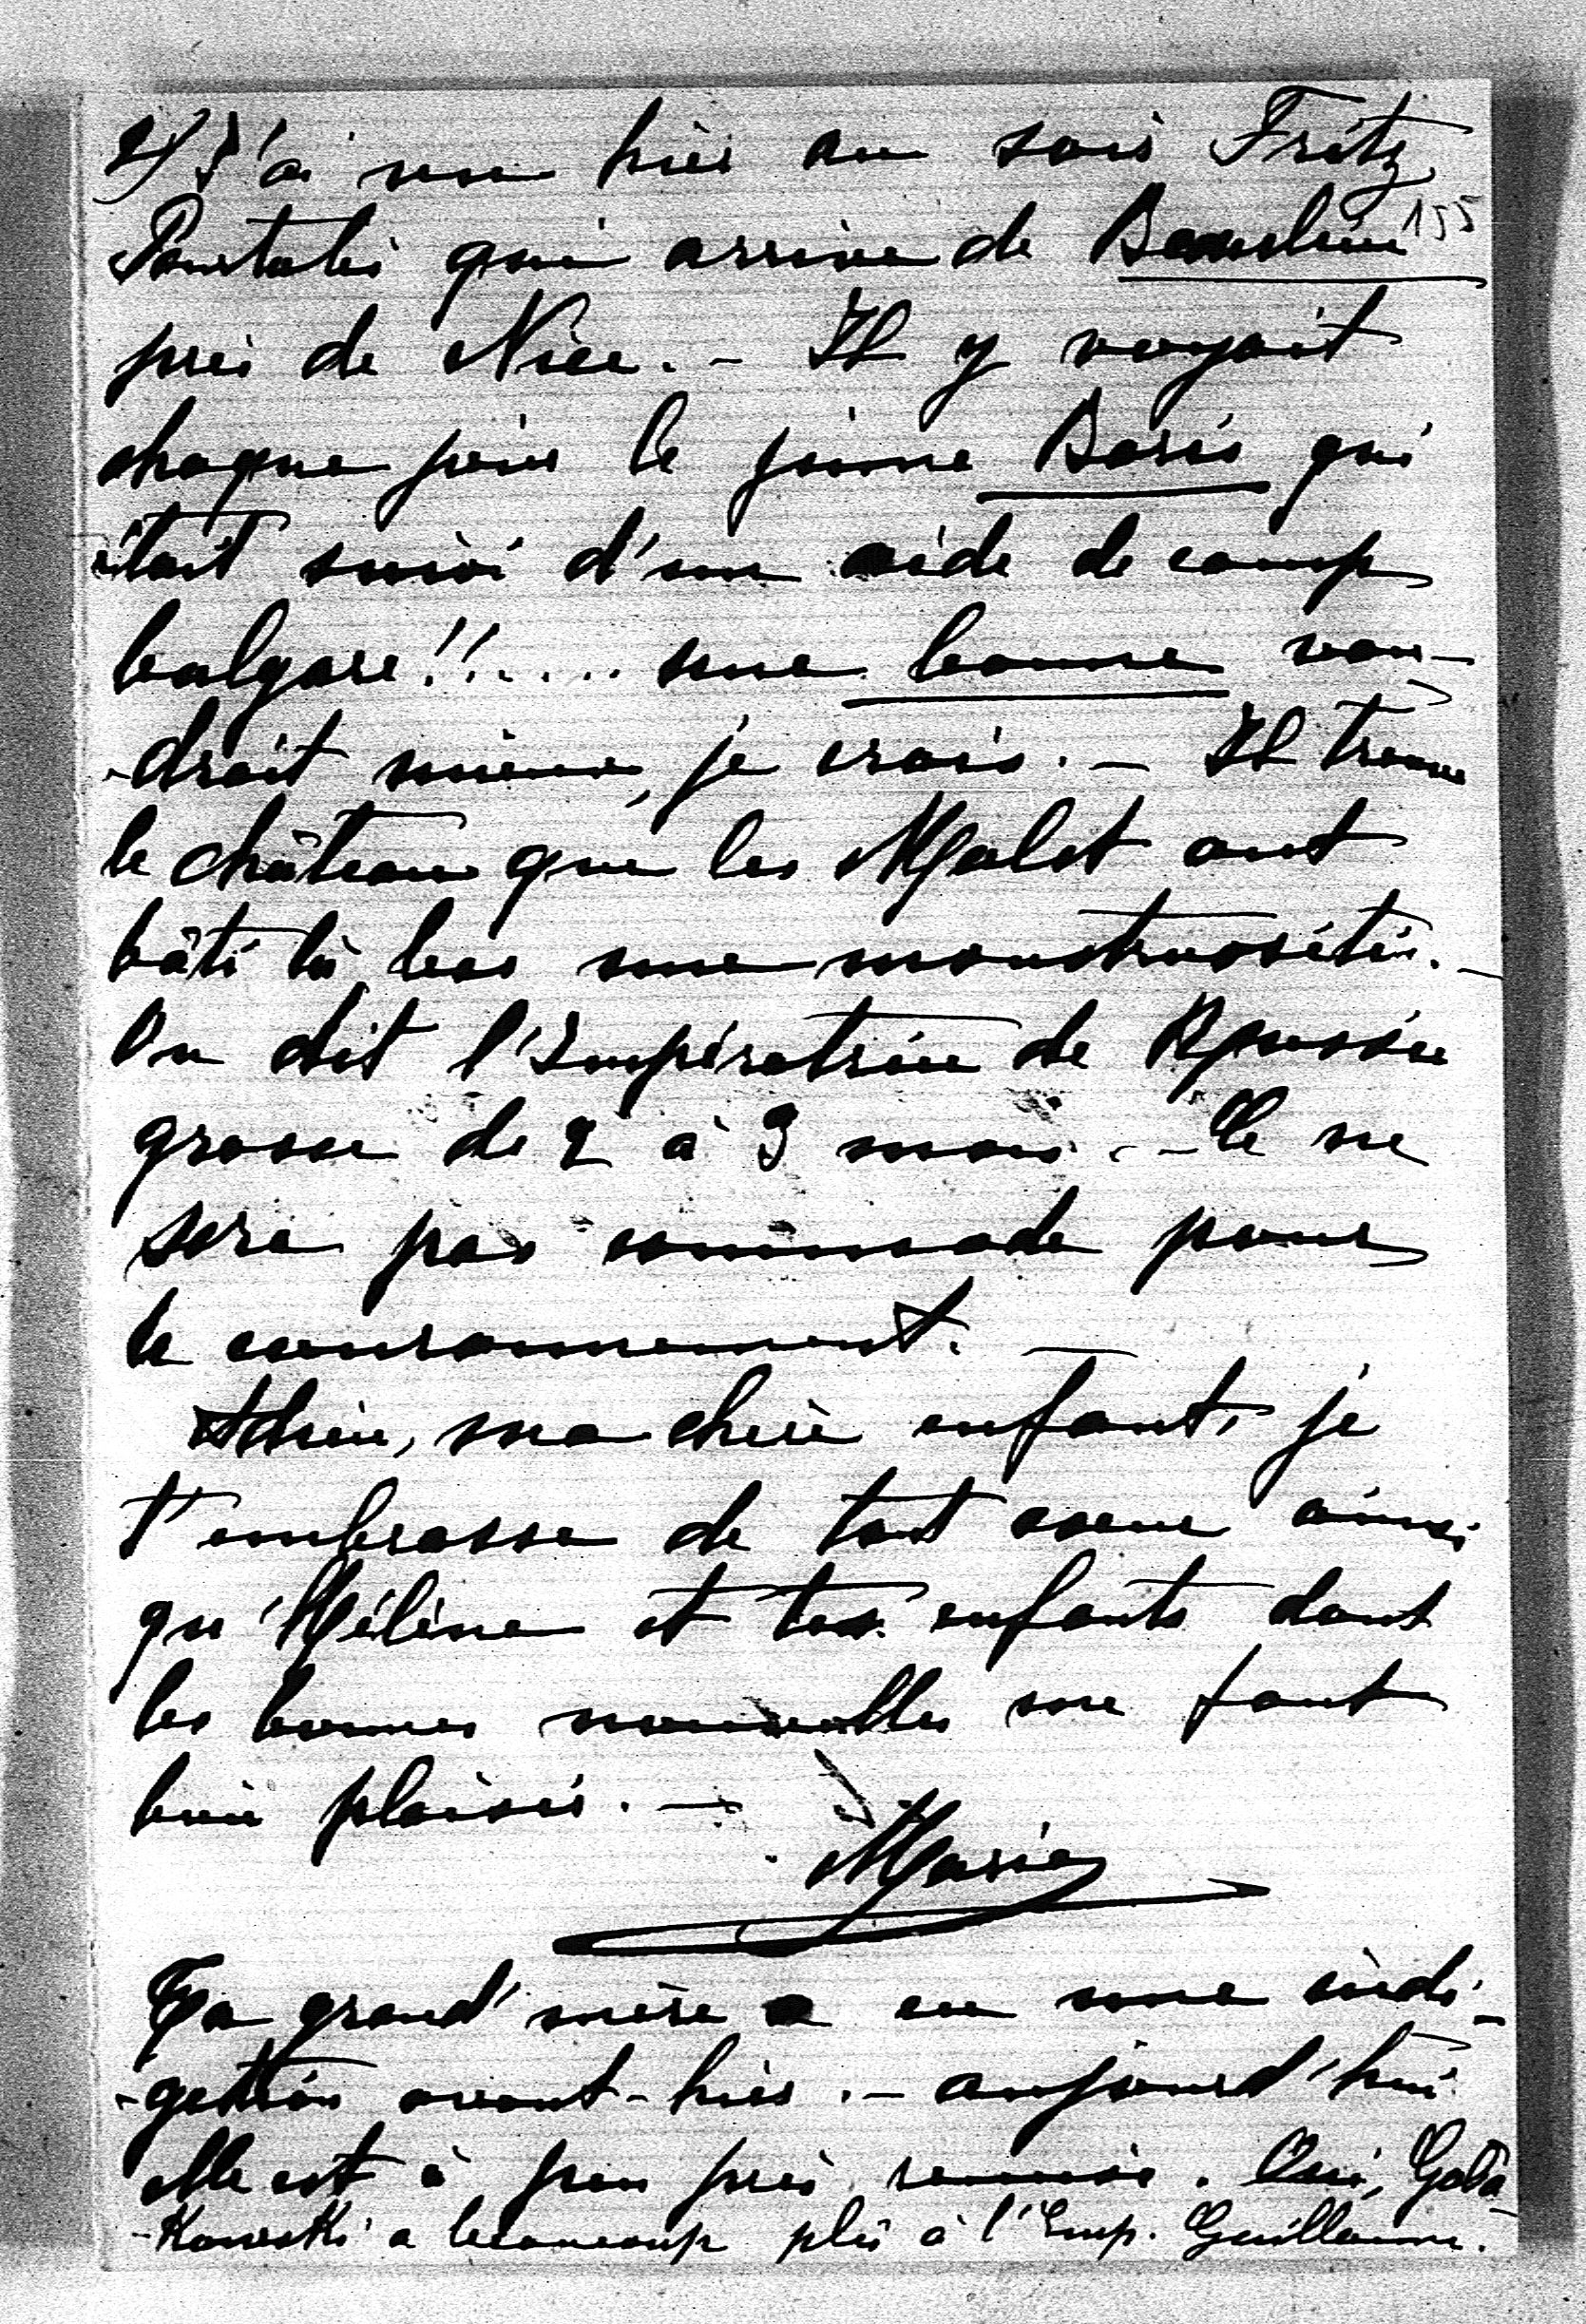 2) J'ai vu hier au soir Fritz
155
Pourtalès qui arrive de Beaulieu
près de Nice. – Il y voyait
chaque jour le jeune Boris qui
était suivi d'un aide de camp
bulgare!!..... une bonne vau-
-drait mieux, je crois. – Il trouve
le château que les Malet ont
bâti là bas une monstruosité. –
On dit l'Impératrice de Russie
grosse de 2 à 3 mois. – Ce ne
sera pas commode pour
le couronnement. –
Adieu, ma chère enfant, je
t'embrasse de tout coeur ainsi
qu'Hélène et tes enfants dont
les bonnes nouvelles me font
bien plaisir. –
Marie
Ta grand'mère a eu une indi-
-gestion avant-hier. – aujourd'hui
elle est à peu près remise. Oui, Golu-
-Kowski a beaucoup plu à l'Emp. Guillaume.